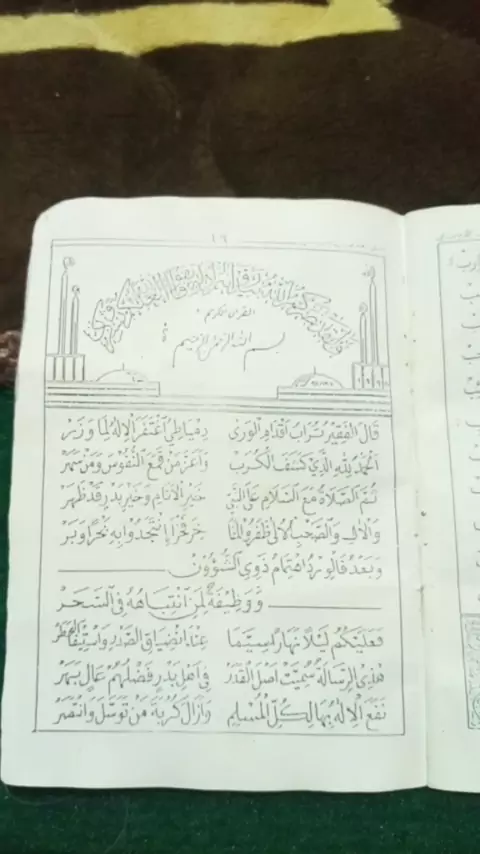 ١٦
القرآن الكريم
بسم الله الرحمن الرحيم
قَالَ الْفَقِيْرُ تُرَابُ اَقْدَامِ الْوَرَى دِمْيَاطِيْ اِغْتَفَرَ الْاِلٰهُ لِمَا وَزَرْ
اَلْحَمْدُ لِلّٰهِ الَّذِيْ كَشَفَ الْكُرَبْ وَاَعَزَّ مَنْ قَمَعَ النُّفُوْسَ وَمَنْ سَهَرْ
ثُمَّ الصَّلَاةُ مَعَ السَّلَامِ عَلَى النَّبِيْ خَيْرِ الْاَنَامِ وَخَيْرِ بَدْرٍ قَدْ ظَهَرْ
وَالْاٰلِ وَالصَّحْبِ الْاُلٰى ظَفِرُوْا
وَبَعْدُ فَالْوِرْدُ اهْتِمَامُ ذَوِي الشُّؤُوْنْ
وَوَظِيْفَةٌ لِمَنِ انْتِبَاهُهُ فِي السَّحَرْ
فَعَلَيْكُمُ لَيْلًا نَهَارًا لَاسِيَّمَا عِنْدَ انْضِيَاقِ الصَّدْرِ
هٰذِيْ الرِّسَالَةُ سُمِّيَتْ اَصْلَ الْقَدَرْ فِيْ اَهْلِ بَدْرٍ فَضْلُهُمْ عَالٍ يَسَمَرْ
نَفَعَ الْاِلٰهُ بِهَا لِكُلِّ الْمُسْلِمِ وَاَزَالَ كُرْبَةَ مَنْ تَوَسَّلَ وَانْتَصَرْ